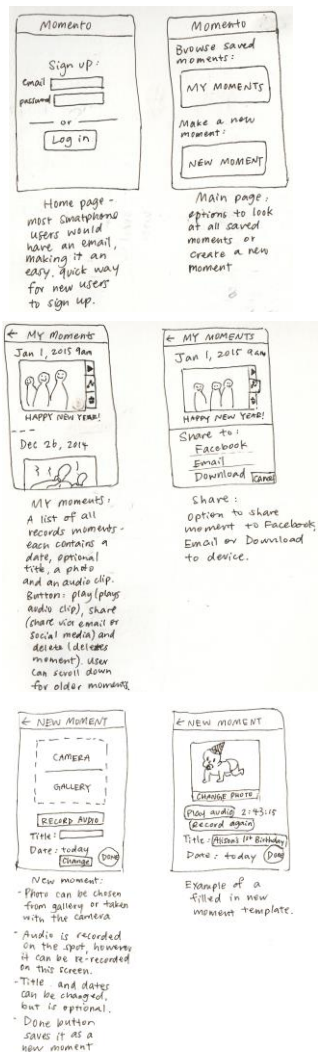 Momento
Sign up:
email
password
or
Log in
Home page -
most smatphone
users would
have an email,
making it an
easy, quick way
for new users
to sign up.
Momento
Browse saved
moments:
MY MOMENTS
Make a new
moment:
NEW MOMENT
Main page:
options to look
at all saved
moments or
create a new
moment
← MY Moments
Jan 1, 2015 9am
HAPPY NEW YEAR!
Dec 26, 2014
MY moments:
A list of all
records moments -
each contains a
date, optional
title, a photo
and an audio clip.
Button: play (plays
audio clip), share
(share via email or
social media) and
delete (deletes
moment). User
can scroll down
for older moments.
← MY MOMENTS
Jan 1, 2015 9am
HAPPY NEW YEAR!
Share to:
Facebook
Email
Download Cancel
Share:
option to share
moment to Facebook,
Email or Download
to device.
← NEW MOMENT
CAMERA
GALLERY
RECORD AUDIO
Title:
Date: today
Change DONE
New moment:
- Photo can be chosen
from gallery or taken
with the camera
- Audio is recorded
on the spot, however
it can be re-recorded
on this screen.
- Title and dates
can be changed,
but is optional.
- Done button
saves it as a
new moment
← NEW MOMENT
CHANGE PHOTO
Play audio 2:43:15
Record again
Title: 1st Birthday
Date: today Done
Example of a
filled in new
moment template.